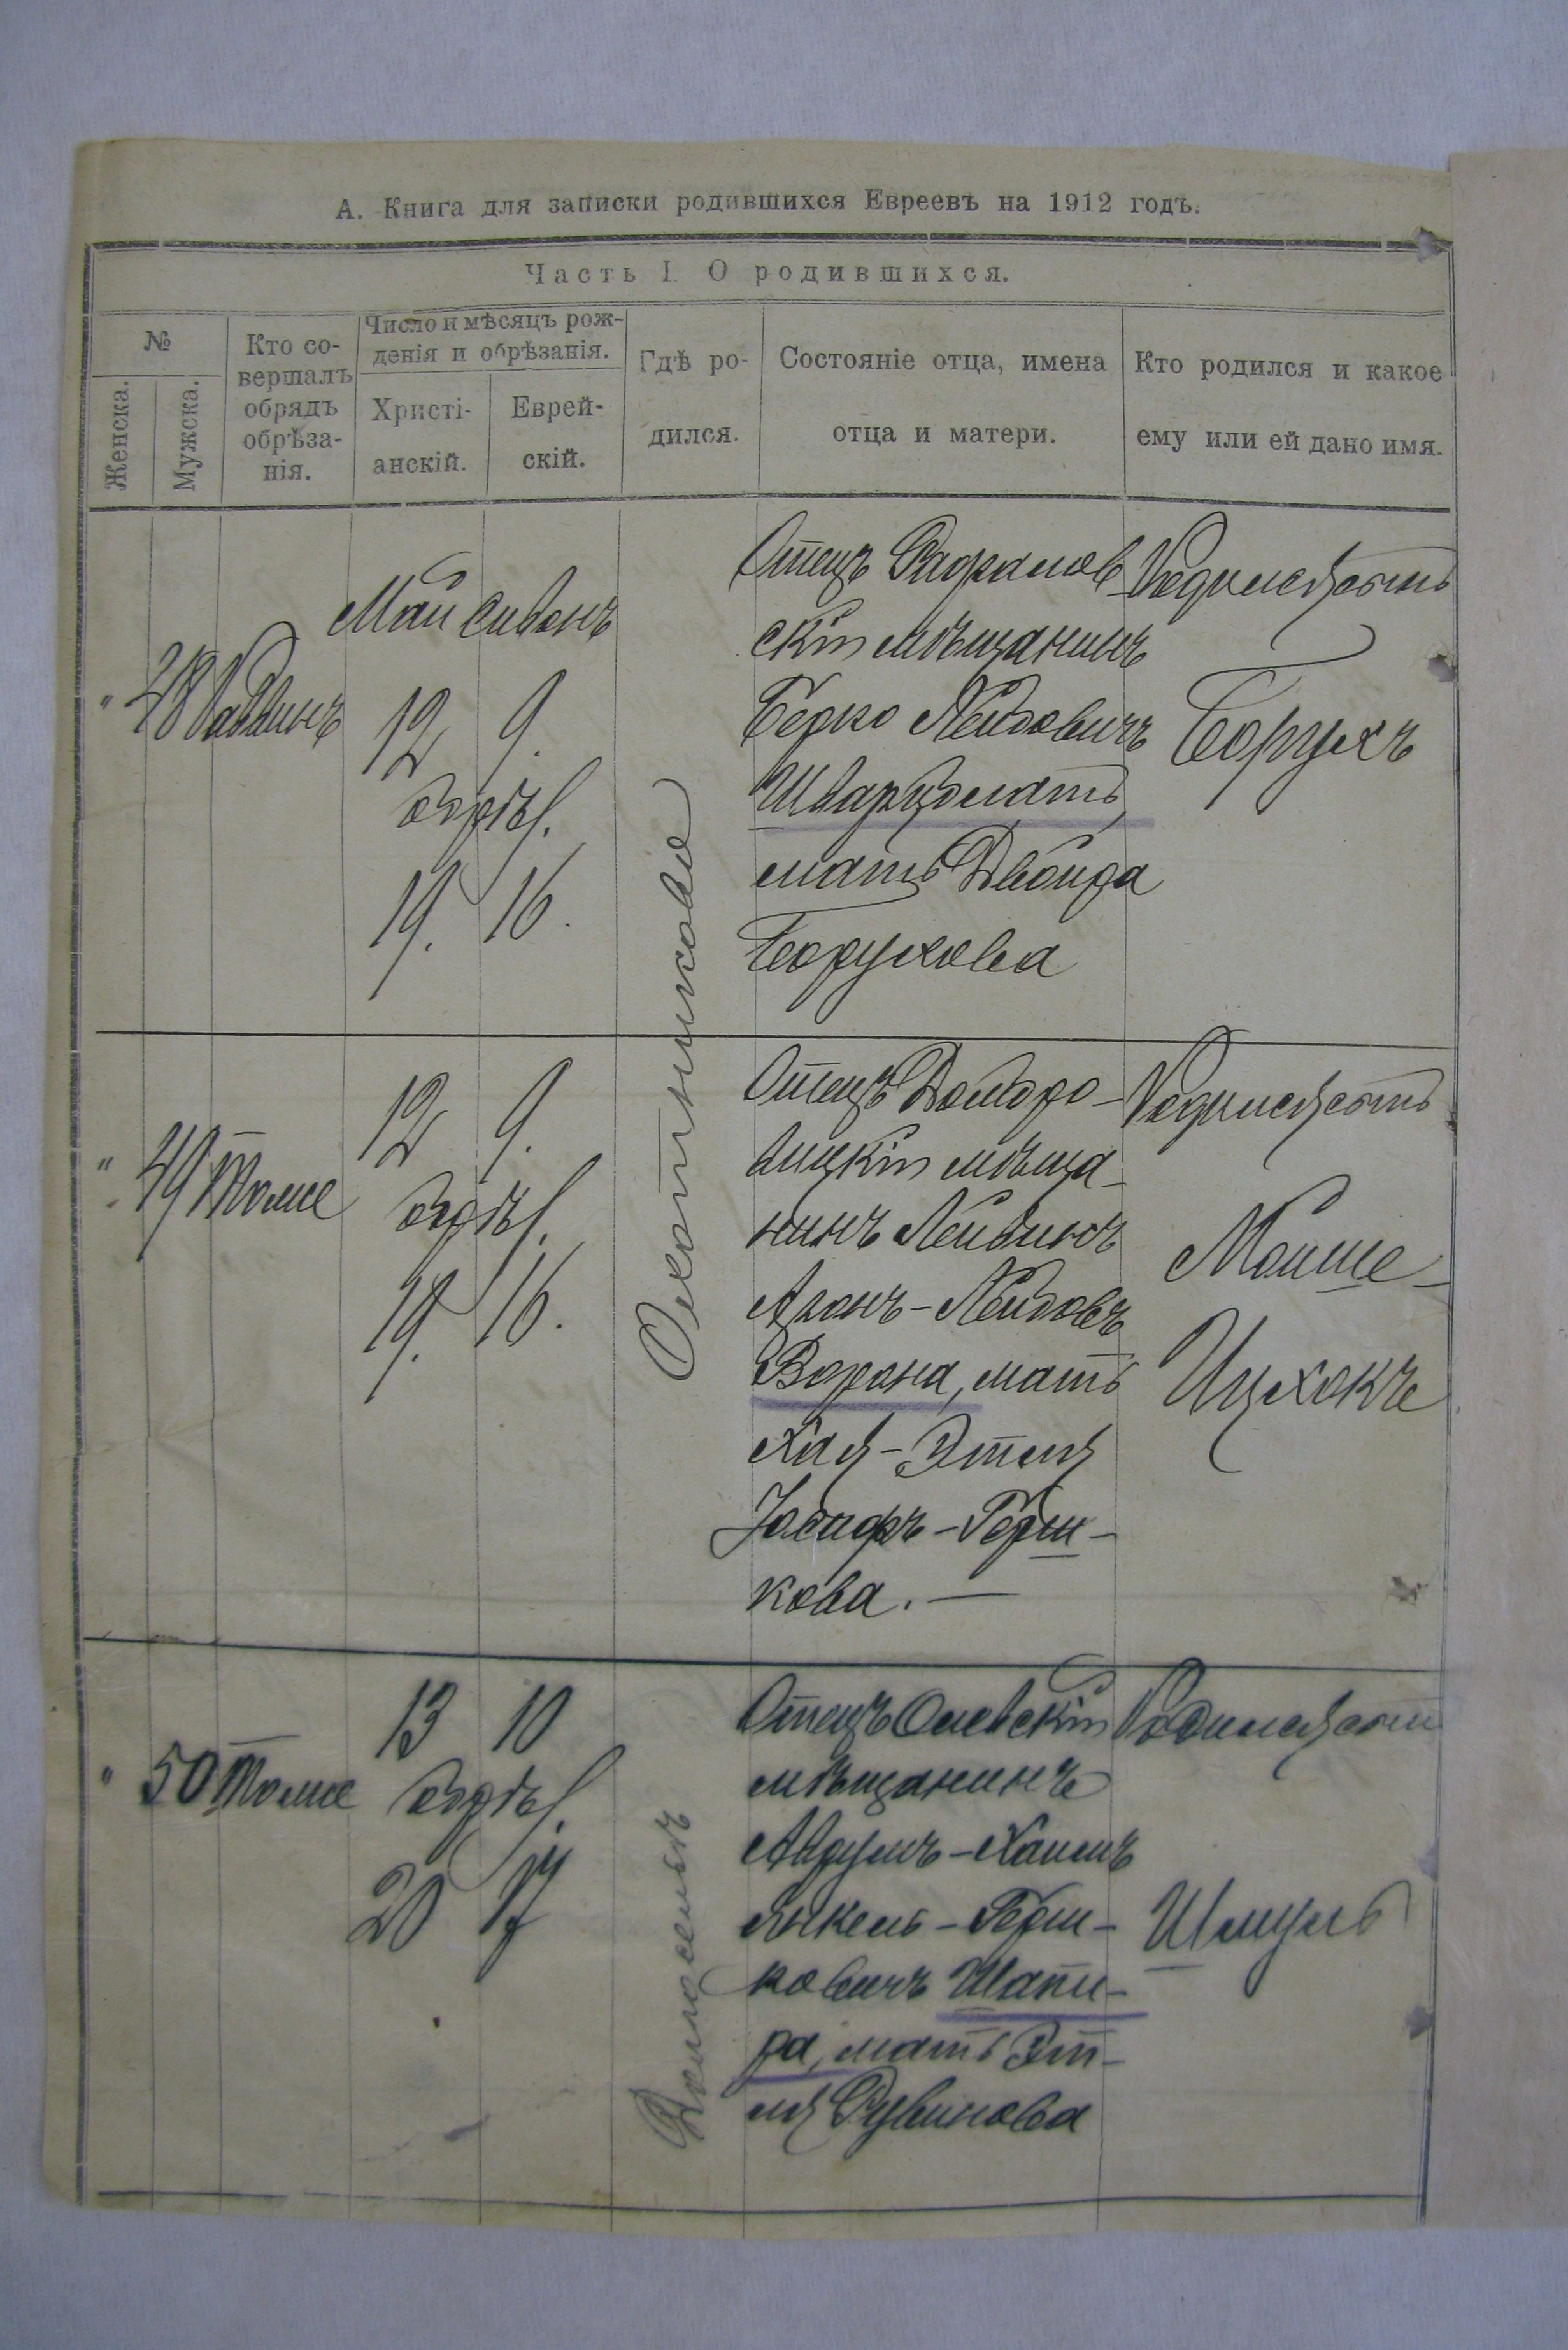 А. Книга для записки родившихся Евреевъ на 1912 годъ.
Часть I. О родившихся.
№
Женска.
Мужска.
Кто со-
вершалъ
обрядъ
обрѣза-
нія.
Число и мѣсяцъ рож-
денія и обрѣзанія.
Христі-
анскій.
Еврей-
скій.
Гдѣ ро-
дился.
Состояніе отца, имена
отца и матери.
Кто родился и какое
ему или ей дано имя.
" 48 Раввинъ
Май Сиванъ
12 9.
обрѣз.
19. 16.
Отецъ
скій мѣщанинъ
Берко Лейбовичъ
Шварцблатъ,
мать Двойра
Борухова
Родился сынъ
Борухъ
" 49 Тоже
12 9.
обрѣз.
19. 16.
Отецъ Домбро-
вицкій мѣща-
нинъ Лейбишъ
Аронъ-Лейбовъ
Ворона, мать
Хая-Этля
Іосифъ-Герш-
кова. —
Родился сынъ
Мойше-
Ицхокъ
" 50 Тоже
13 10
обрѣз.
20 17
Отецъ Олевскій
мѣщанинъ
Аврумъ-Хаимъ
Янкель-Герш-
ковичъ Шапи-
ра, мать Эт-
ля Рувинова
Родился сынъ
Шмуль